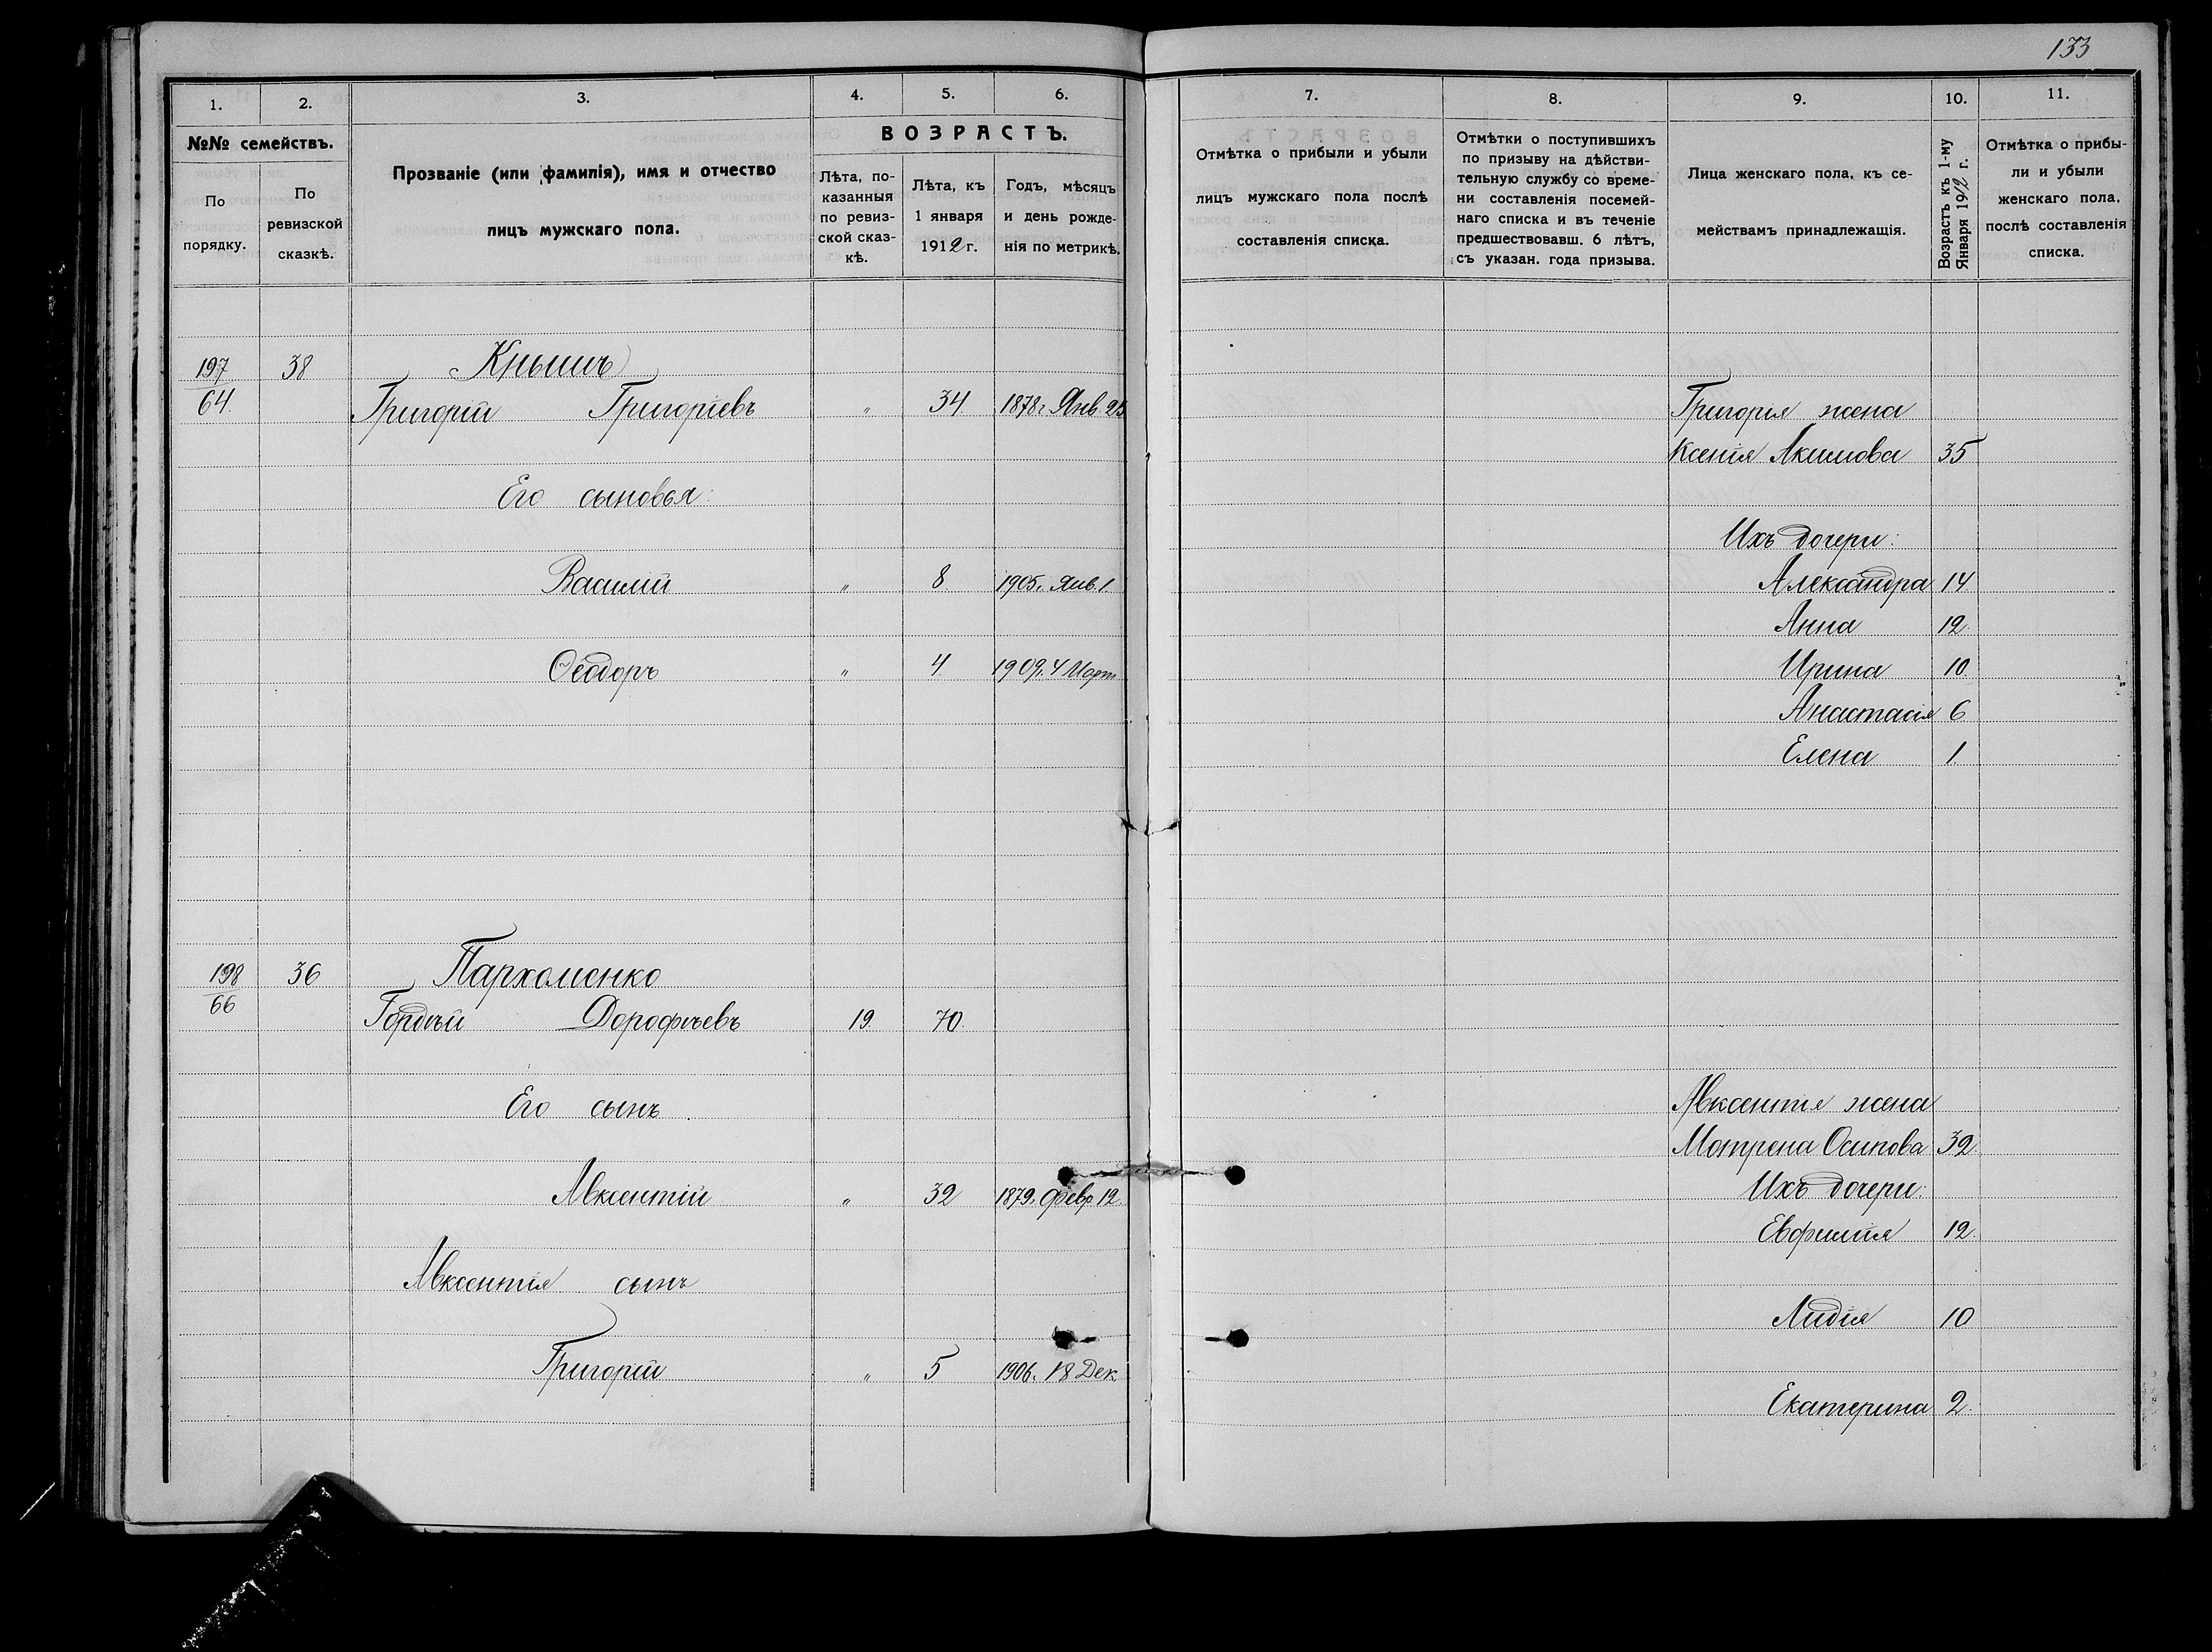 133
1. 2. 3. 4. 5. 6.
№№ семействъ.
По порядку.
По ревизской сказкѣ.
Прозваніе (или фамилія), имя и отчество
лицъ мужскаго пола.
ВОЗРАСТЪ.
Лѣта, по-
казанныя
по ревиз-
ской сказ-
кѣ.
Лѣта, къ
1 января
1912 г.
Годъ, мѣсяцъ
и день рожде-
нія по метрикѣ.
197 38 Кнышъ
64. Григорій Григоріевъ " 34 1878 г. Янв. 25
Его сыновья:
Василій " 8. 1905 г. Янв. 1.
Ѳеодоръ " 4. 1909 г. 4 Март
198 36 Пархоменко
66 Гордѣй Дорофѣевъ 19. 70.
Его сынъ.
Авксентій " 32 1879 г. Февр. 12.
Авксентія сынъ
Григорій " 5 1906 г. 18 Дек.
7. 8. 9. 10. 11.
Отмѣтка о прибыли и убыли
лицъ мужскаго пола послѣ
составленія списка.
Отмѣтки о поступившихъ
по призыву на дѣйстви-
тельную службу со време-
ни составленія посемей-
наго списка и въ теченіе
предшествовавш. 6 лѣтъ,
съ указан. года призыва.
Лица женскаго пола, къ се-
мействамъ принадлежащія.
Возрастъ къ 1-му
Января 1912 г.
Отмѣтка о прибы-
ли и убыли
женскаго пола,
послѣ составленія
списка.
Григорія жена
Ксенія Акимова 35
Ихъ дочери:
Александра 14.
Анна 12.
Ирина 10.
Анастасія 6
Елена 1.
Авксентія жена
Мотрена Осипова 32.
Ихъ дочери:
Евфимія 12.
Лидія 10
Екатерина 2.